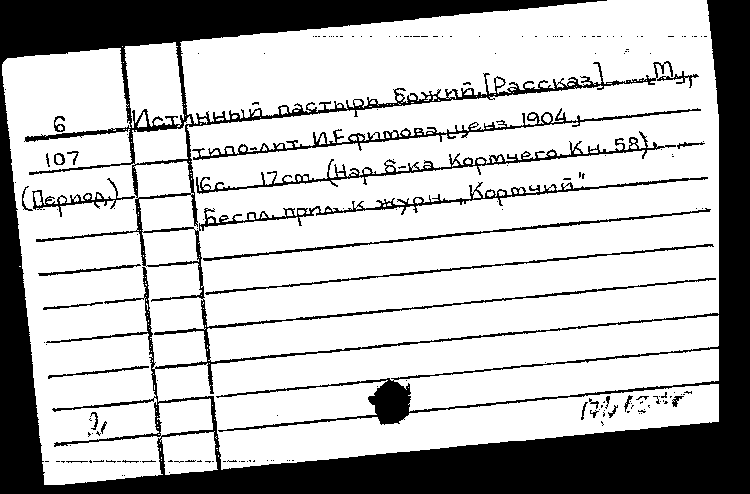 6 Истинный пастырь божий. [Рассказ] М.,
107 типо-лит. И. Ефимова, ценз. 1904.
(Период.) 16с. 17см. (Нар. б-ка Кормчего Кн. 58).
Беспл. прил. к журн. „Кормчий"